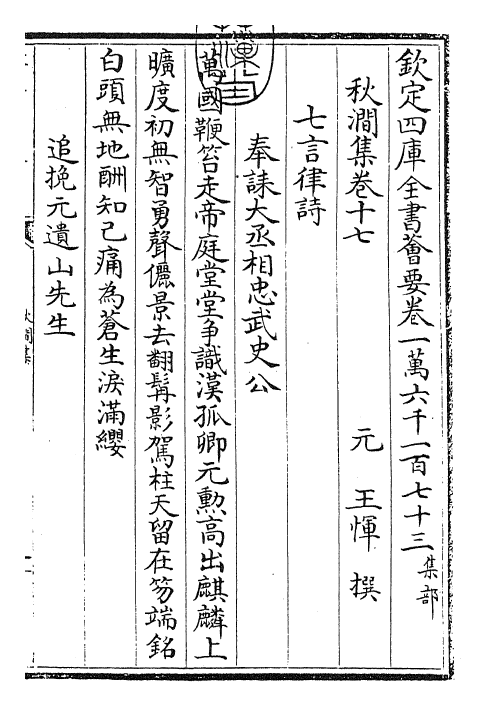 欽定四庫全書薈要卷一萬六千一百七十三集部
秋澗集卷十七
元 王惲 撰
七言律詩
奉誄大丞相忠武史公
萬國鞭笞走帝庭堂堂争識漢孤卿元勲高出麒麟上
曠度初無智勇聲儷景去翻髯影駕柱天留在笏端銘
白頭無地酬知己痛為蒼生淚滿纓
追挽元遺山先生